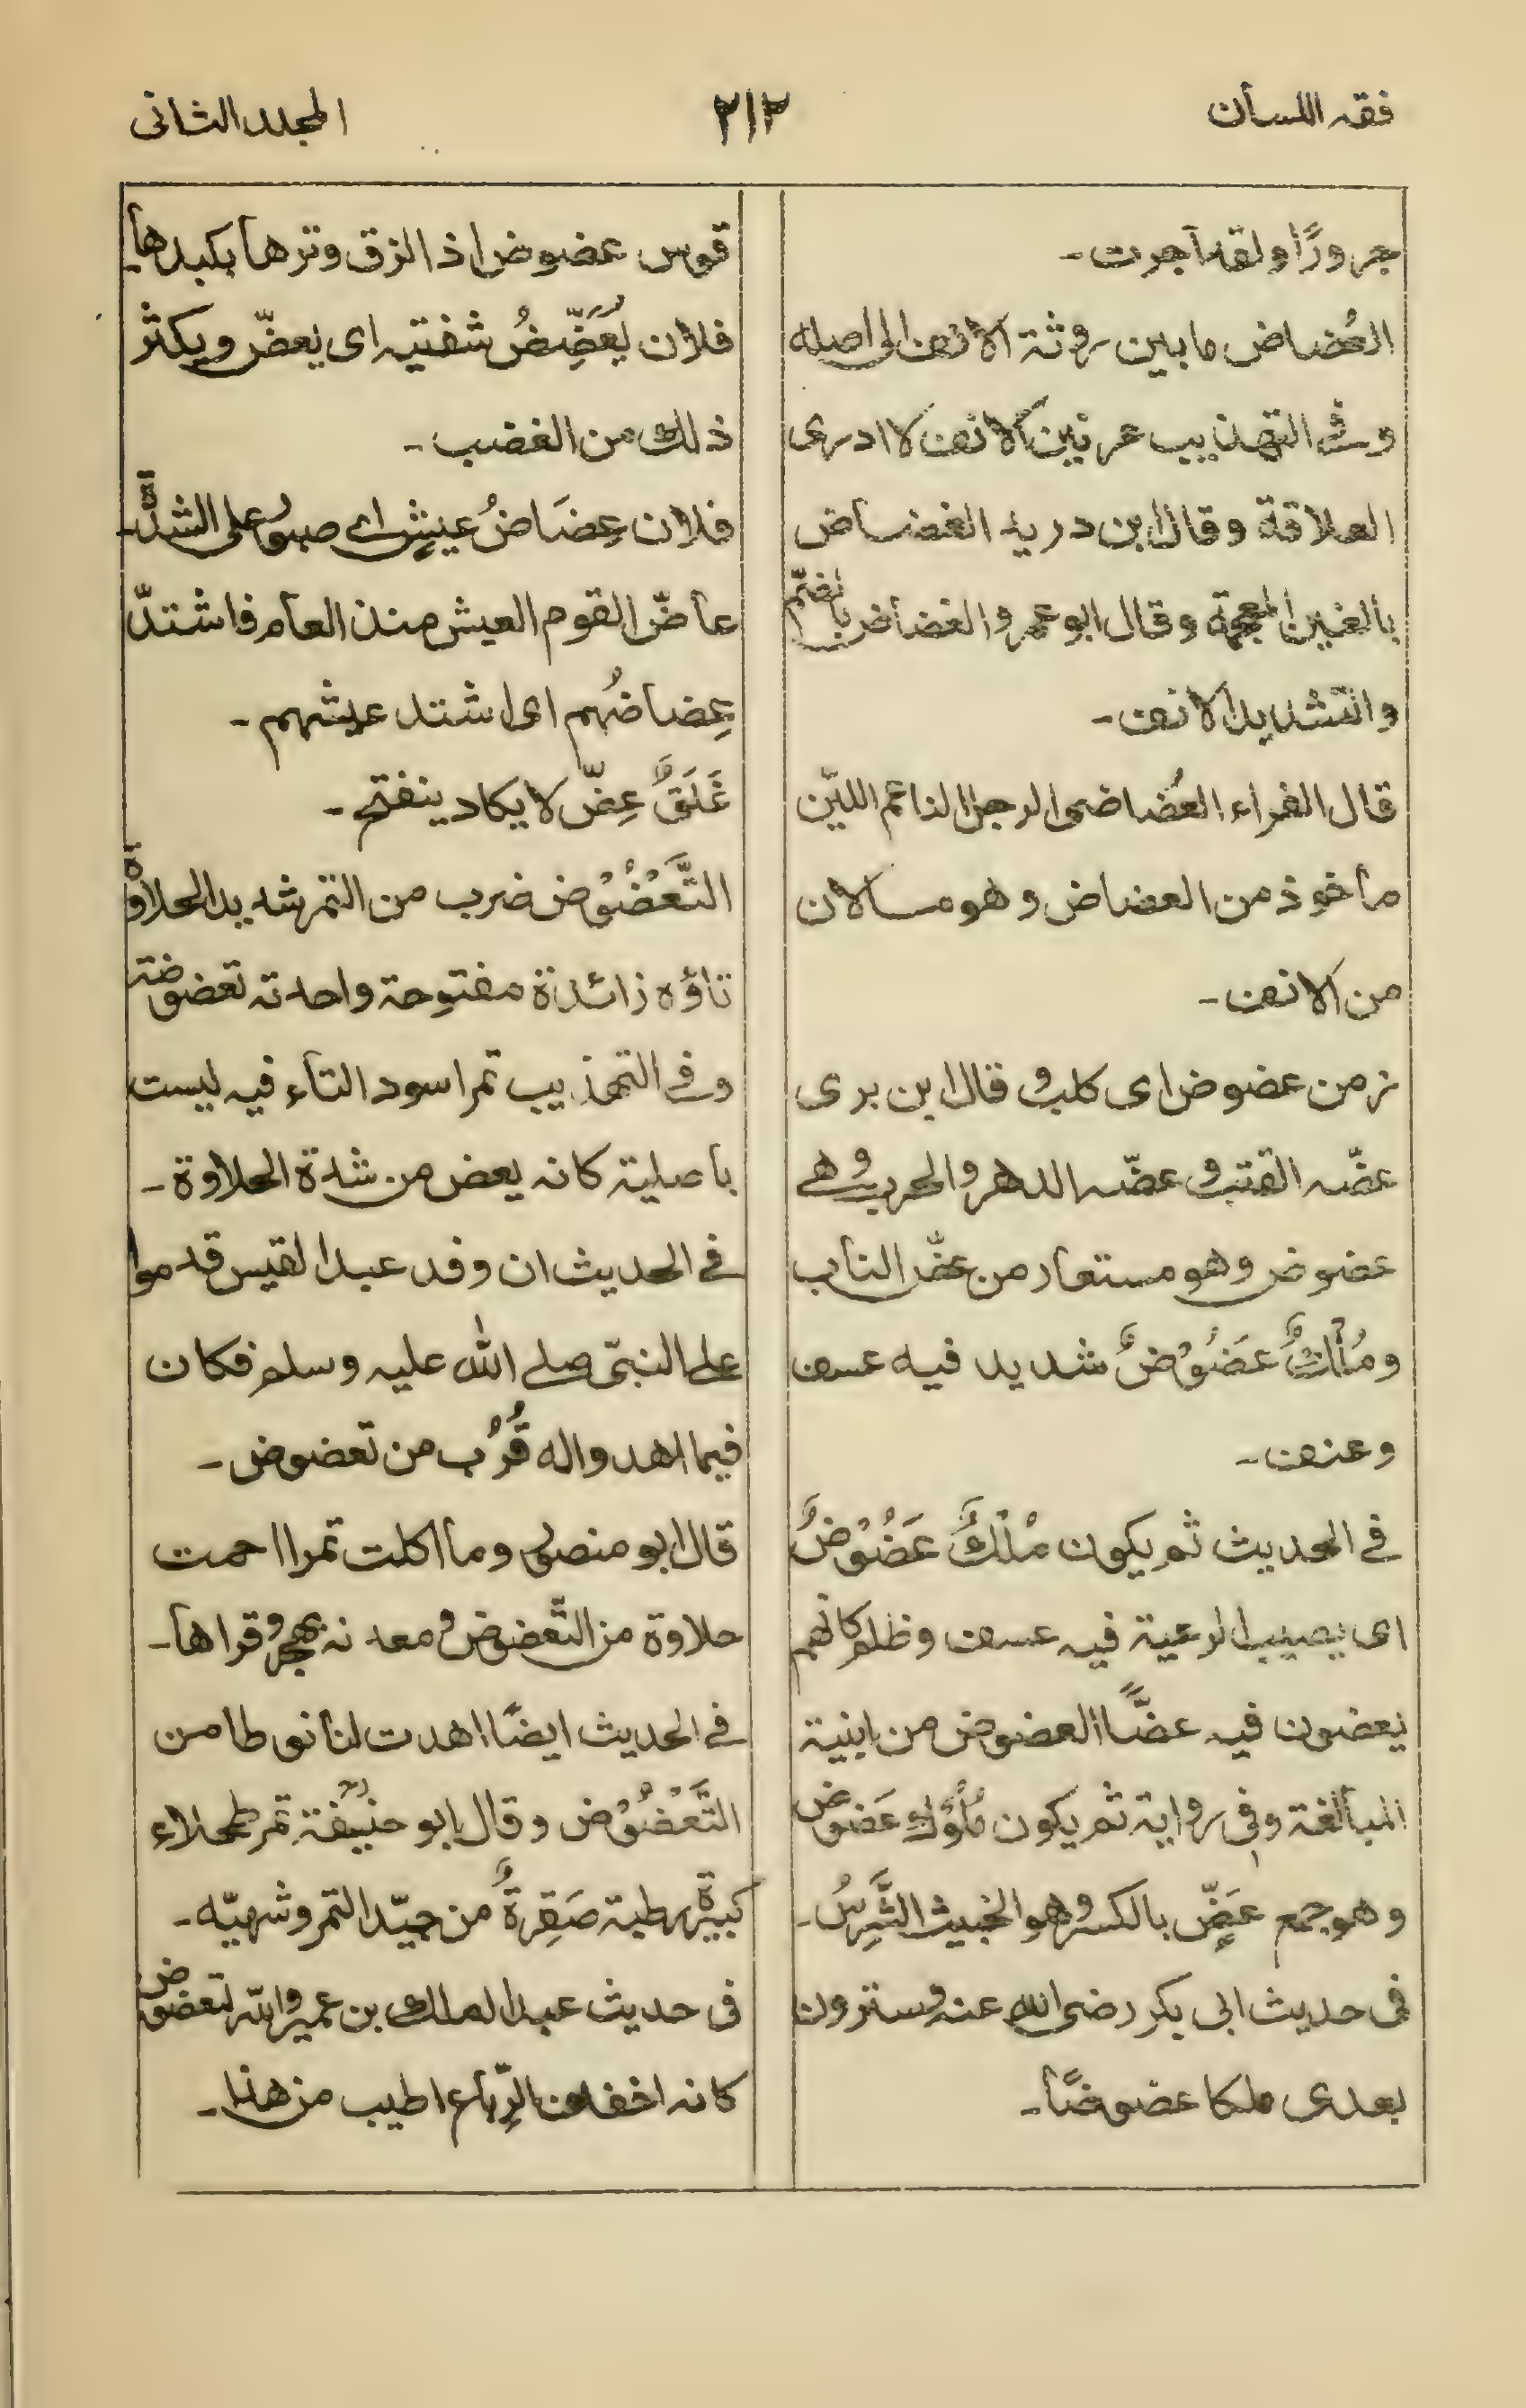 فقہ اللسان
٢١٢
المجلد الثانی
جرورًا ولقد آجرت -
العُضاض ما بین روثة الانف الی اصله
وفی التھذیب عرنین الانف لا ادری
العلاقة وقال ابن درید الغضاض
بالغین المعجمة وقال ابو عمرو العضاض بالضم
والتشدید الانف -
قال الفراء العُضاضی الرجل الناعم اللیّن
مأخوذ من العضاض وھو مسالان
من الانف -
زمن عضوض ای کلب وقال ابن بری
عضّه القتب وعضّه الدھر والحرب وھی
عضوض وھو مستعار من عضّ الناب
ومُلْكٌ عَضُوْضٌ شدید فیه عسف
وعنف -
فی الحدیث ثم یکون مُلْكٌ عَضُوْضٌ
ای یصیب الرعیة فیه عسف وظلم کانھم
یعضون فیه عضًّا العضوض من ابنیة
المبالغة وفی روایة ثم یکون مُلُوْك عَضوض
وھو جمع عِضّ بالکسر وھو الخبیث الشَّرِسُ -
فی حدیث ابی بکر رضی الله عنه وسترون
بعدی ملکا عضوضًا -
قوس عضوض اذا لزق وترھا بکبدھا -
فلان یُعَضِّضُ شفتیه ای یعضّ ویکثر
ذلك من الغضب -
فلان عِضَاضُ عیشٍ ای صبور علی الشدّة -
عاضّ القوم العیش منذ العام فاشتدّ
عِضاضُھم ای اشتد عیشھم -
غَلَقٌ عِضّ لا یکاد ینفتح -
التَّعْضُوْض ضرب من التمر شدید الحلاوة
تاؤه زائدة مفتوحة واحدته تعضوضة
وفی التھذیب تمر اسود التاء فیه لیست
باصلیة کانه یعض من شدة الحلاوة -
فی الحدیث ان وفد عبد القیس قدموا
علی النبیّ صلی الله علیه وسلم فکان
فیما اھدوا له قُرُب من تعضوض -
قال ابو منصور وما اکلت تمرا احمت
حلاوة من التّعضوض ومعدنه بھجر وقراھا -
فی الحدیث ایضًا اھدت لنا نوطا من
التَّعْضُوْض وقال ابو حنیفة تمر طحلاء
کبیرة رطبة صَقِرةٌ من جیّد التمر وشھیّه -
فی حدیث عبد الملك بن عمیر والله لتعضوض
کانه اخفاف الرِّباع اطیب من ھذا -